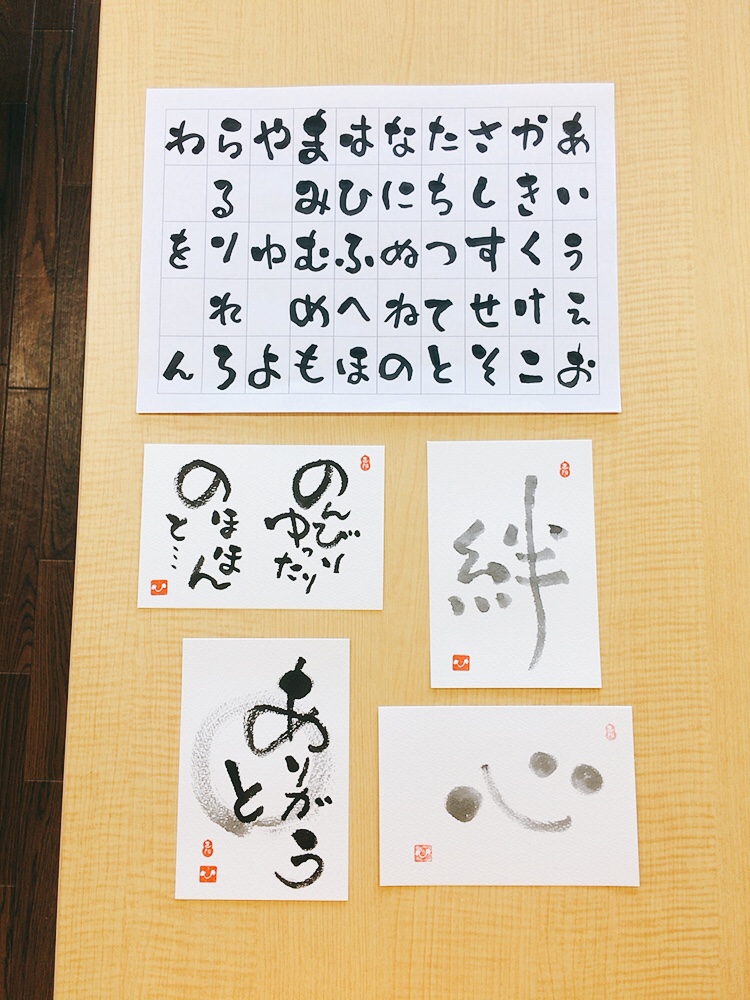 あいうえお
かきくけこ
さしすせそ
たちつてと
なにぬねの
はひふへほ
まみむめも
やゆよ
らるりれろ
わをん
のんびり
ゆったり
のほほん
と…
絆
ありが
とう
心